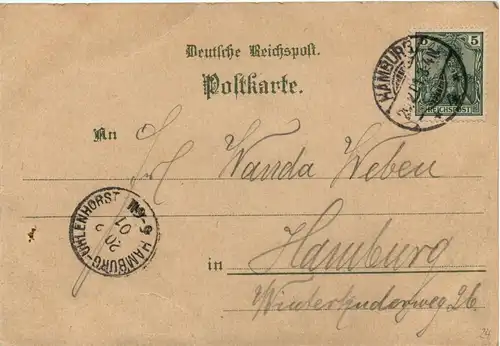 Deutsche Reichspost.
Postkarte.
An
Frl Wanda Weben
in Hamburg
Winterhuderweg 26.
5
REICHSPOST
HAMBURG
HAMBURG-UHLENHORST
20 2
01
24